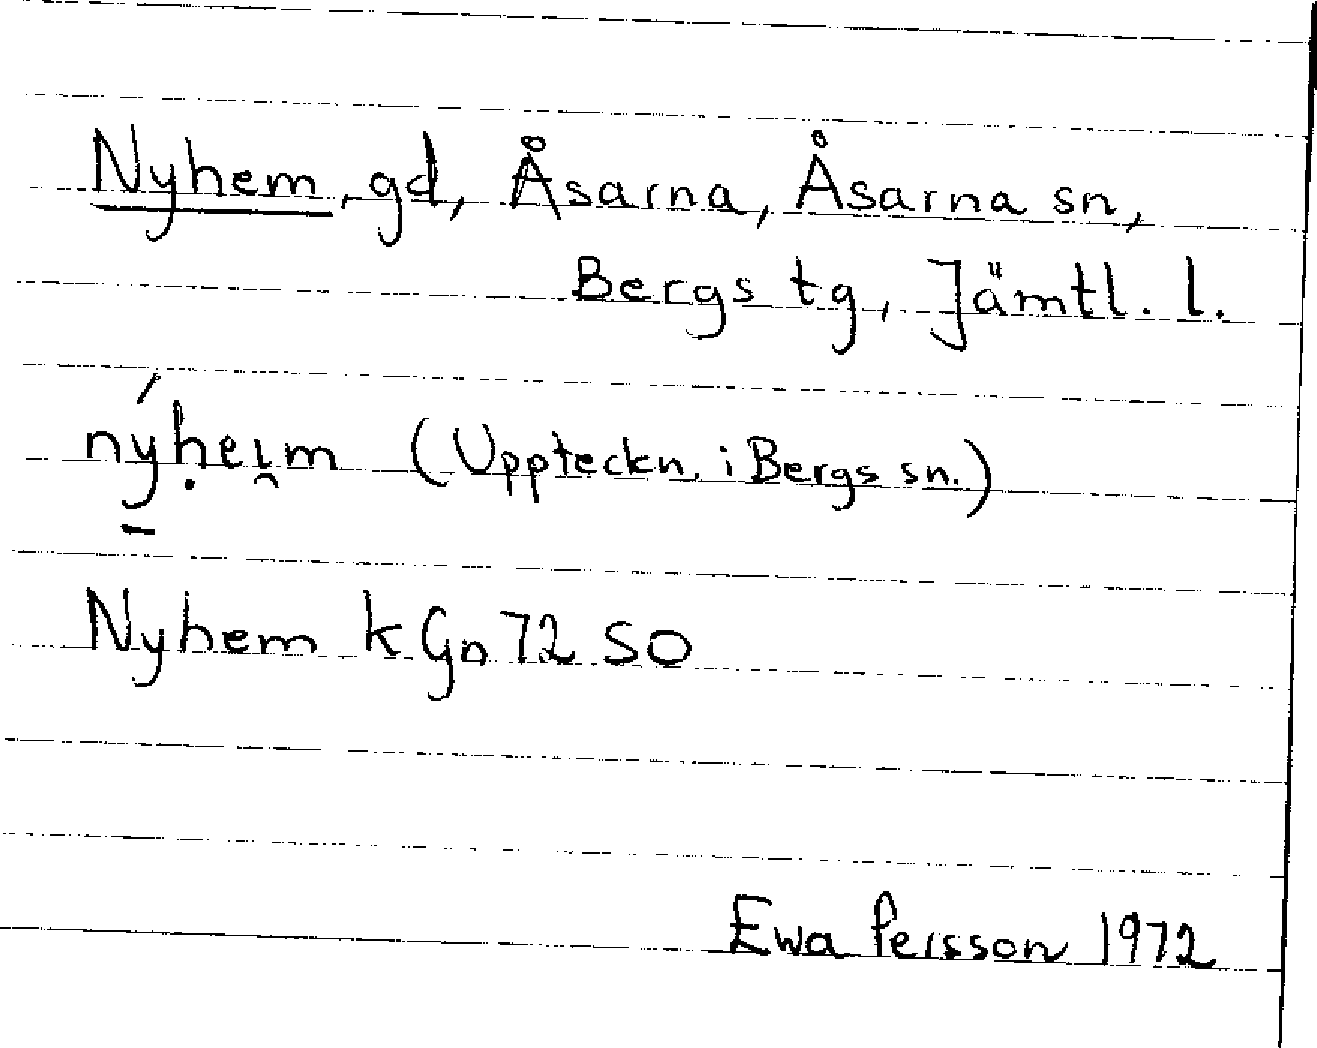 Nyhem, gd, Åsarna, Åsarna sn,
Bergs tg, Jämtl. l.
ný̱ḥeı̯m (Uppteckn. i Bergs sn.)
Nyhem k Gn 72 SO
Ewa Persson 1972